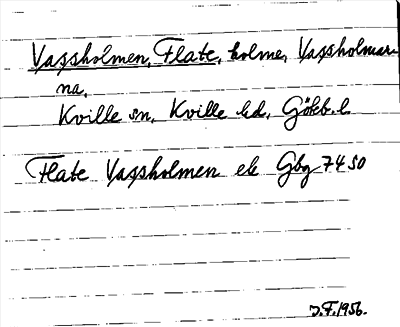 Vassholmen, Flate, holme, Vassholmar-
na,
Kville sn, Kville hd, Götb. l.
Flate Vassholmen ek Gbg 7450
J.F. 1956.